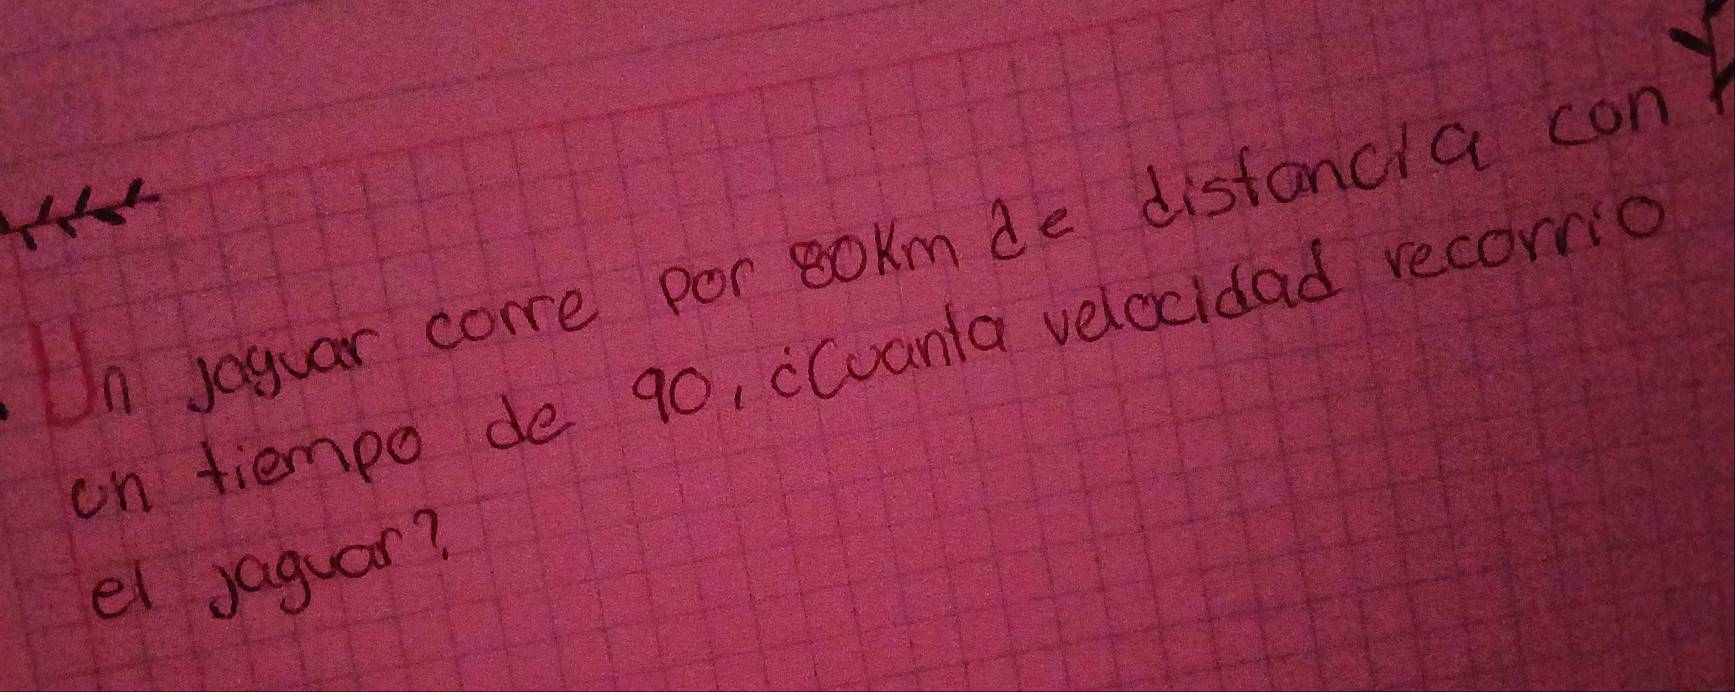 Un jaguar corre por 80Km de distancia con
un tiempo de 90, ¿Cuanta velocidad recorrio
el jaguar?